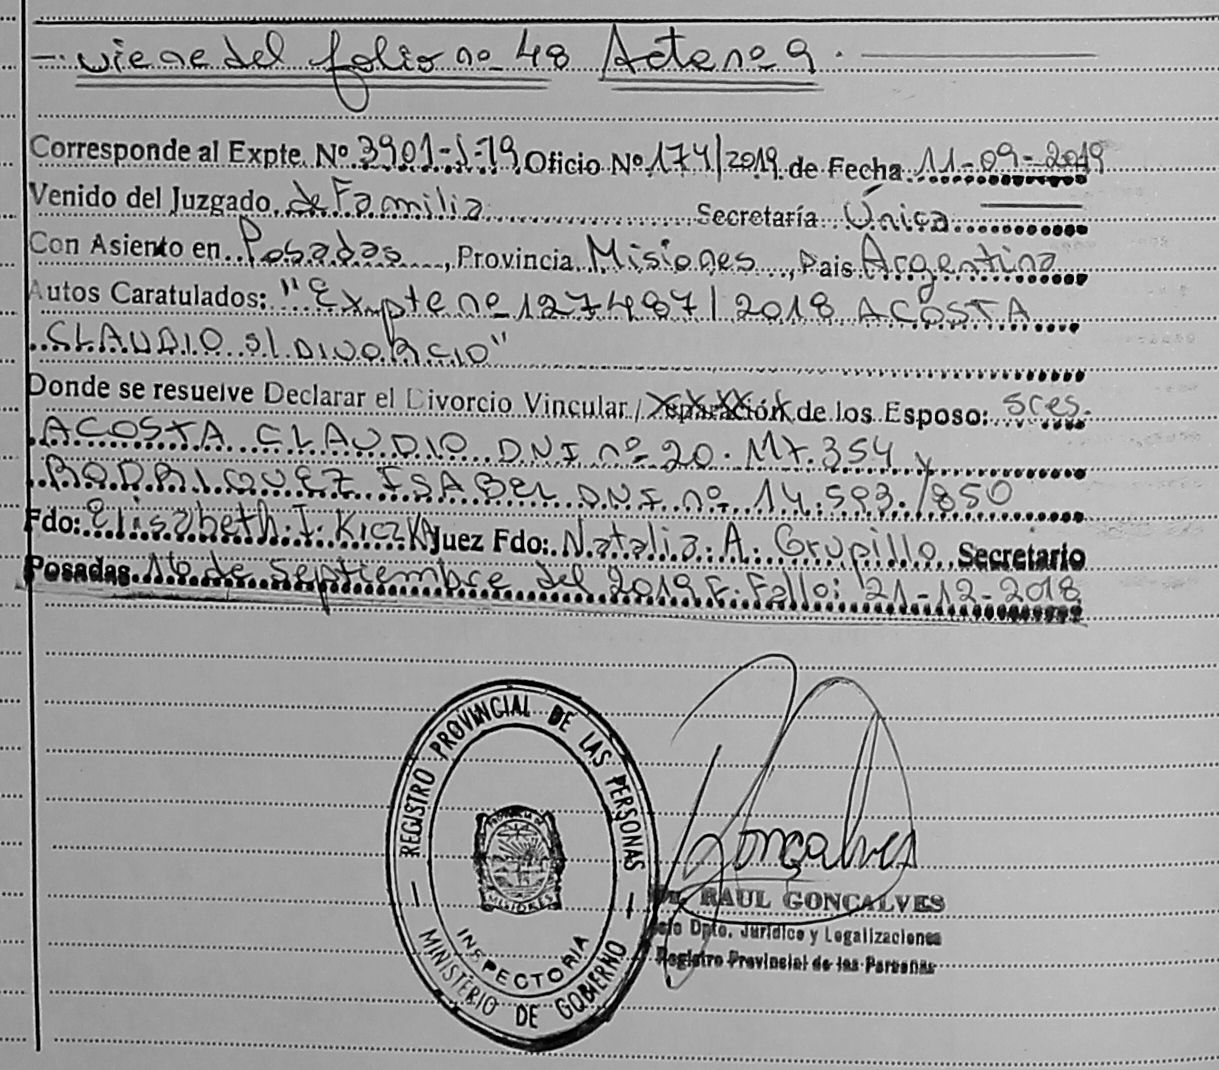 -. viene del folio nº 48 Acta nº 9. -
Corresponde al Expte. Nº 3901-J-19 Oficio Nº 174/2019 de Fecha 11-09-2019
Venido del Juzgado de Familia Secretaría Única
Con Asiento en Posadas, Provincia Misiones, Pais Argentina
Autos Caratulados: "Expte nº 127487/2018 ACOSTA
CLAUDIO S/ DIVORCIO"
Donde se resuelve Declarar el Divorcio Vincular / Separación de los Esposo: sres.
ACOSTA CLAUDIO DNI nº 20. .354 y
RODRIGUEZ ISABEL DNI nº 14.593.850
Fdo: Elisabeth. I. KiczKA Juez Fdo: Natalia. A. Grupillo Secretario
Posadas 16 de septiembre del 2019 F. Fallo: 21-12-2018
REGISTRO PROVINCIAL DE LAS PERSONAS
PROVINCIA DE
MISIONES
INSPECTORIA
MINISTERIO DE GOBIERNO
Gonçalves
Dr. RAUL GONCALVES
Jefe Dpto. Jurídico y Legalizaciones
Registro Provincial de las Personas